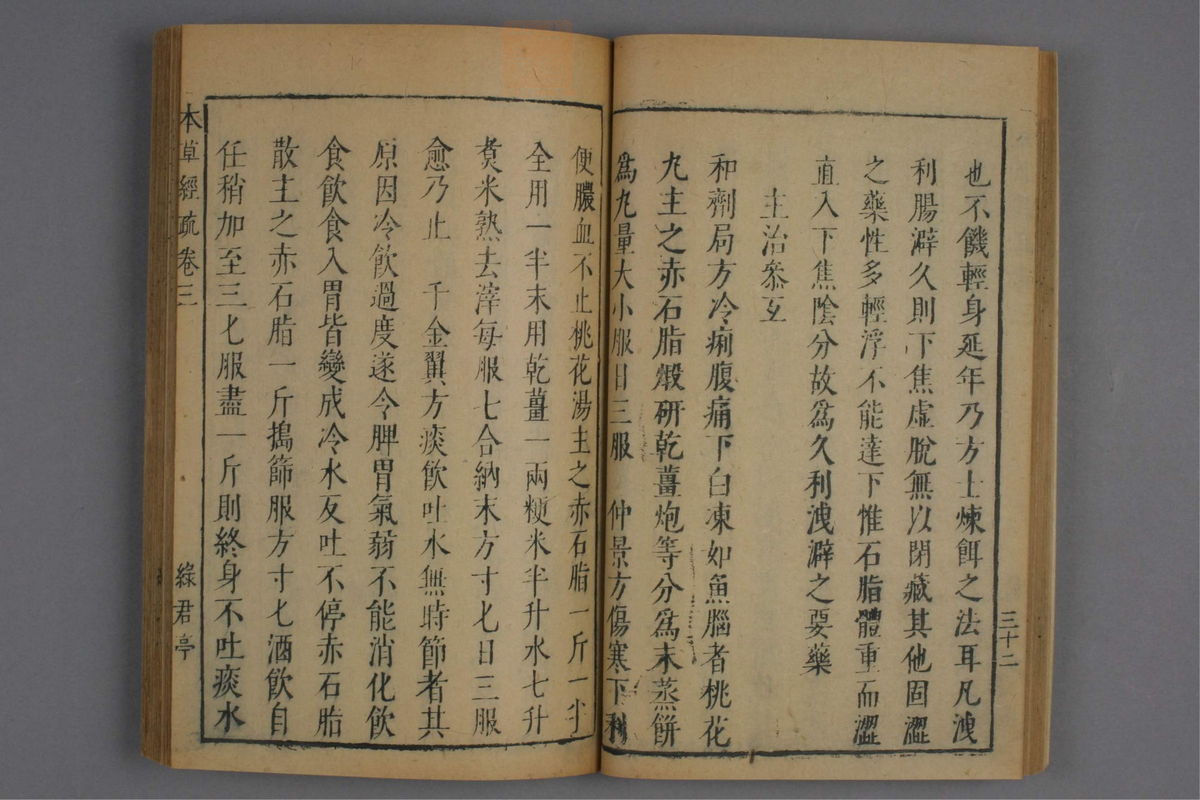 三十二
也不饑輕身延年乃方士煉餌之法耳凡洩
利腸澼久則下焦虛脫無以閉藏其他固澀
之藥性多輕浮不能達下惟石脂體重而澀
直入下焦陰分故爲久利洩澼之要藥
主治參互
和劑局方冷痢腹痛下白凍如魚腦者桃花
丸主之赤石脂煅研乾薑炮等分爲末蒸餅
爲丸量大小服日三服 仲景方傷寒下利
便膿血不止桃花湯主之赤石脂一斤一半
全用一半末用乾薑一兩粳米半升水七升
煑米熟去滓每服七合納末方寸匕日三服
愈乃止 千金翼方痰飲吐水無時節者其
原因冷飲過度遂令脾胃氣弱不能消化飲
食飲食入胃皆變成冷水反吐不停赤石脂
散主之赤石脂一斤搗篩服方寸匕酒飲自
任稍加至三匕服盡一斤則終身不吐痰水
本草經疏卷三
綠君亭